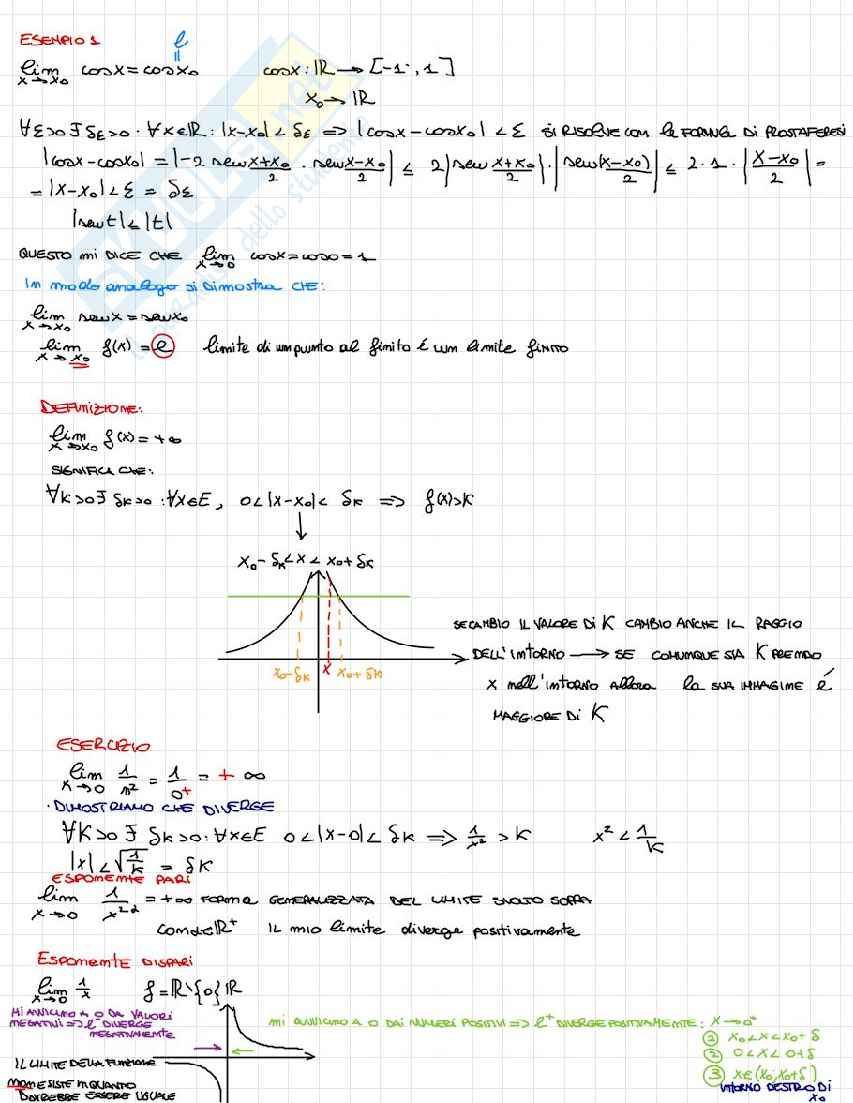 ESEMPIO 1
l
lim x→x₀ cosx = cosx₀ cosx : ℝ → [-1, 1]
x₀ → ℝ
∀ε>0 ∃ δε>0 · ∀x∈ℝ : |x-x₀| < δε ⇒ |cosx - cosx₀| < ε SI RISOLVE COM le FORMULE DI PROSTAFERESI
|cosx - cosx₀| = |-2 sen x+x₀/2 · sen x-x₀/2| ≤ 2|sen x+x₀/2| · |sen(x-x₀)/2| ≤ 2·1·|x-x₀/2| =
= |x-x₀| < ε = δε
|sen t| ≤ |t|
QUESTO mi DICE CHE lim x→0 cosx = cos0 = 1
In modo analogo si DIMOSTRA CHE:
lim x→x₀ senx = senx₀
lim x→x₀ f(x) = l limite di un punto al finito é um limite FINITO
DEFINIZIONE:
lim x→x₀ f(x) = +∞
SIGNIFICA CHE:
∀K>0 ∃ δK>0 : ∀x∈E, 0<|x-x₀|< δK ⇒ f(x)>K
x₀-δK < x < x₀+δK
SE CAMBIO IL VALORE DI K CAMBIO ANCHE IL RAGGIO
DELL'INTORNO → SE COMUNQUE SIA K PRENDO
x₀-δK x x₀+δK
x nell'INTORNO Allora la SUA IMMAGINE é
MAGGIORE DI K
ESERCIZIO
lim x→0 1/x² = 1/0⁺ = +∞
· DIMOSTRIAMO CHE DIVERGE
∀K>0 ∃ δK>0 · ∀x∈E 0<|x-0|< δK ⇒ 1/x² > K x² < 1/K
|x| < √1/K = δK
ESPONENTE PARI
lim x→0 1/x^2α = +∞ FORMA GENERALIZZATA DEL LIMITE SVOLTO SOPRA
con α∈ℝ⁺ IL mio limite diverge positivamente
Esponente DISPARI
lim x→0 1/x f = ℝ\{0} ℝ
Mi AVVICINO A 0 DA VALORI
NEGATIVI ⇒ l⁻ DIVERGE
NEGATIVAMENTE
mi AVVICINO A 0 DAI NUMERI POSITIVI ⇒ l⁺ DIVERGE POSITIVAMENTE: x→0⁺
① x₀<x<x₀+δ
② 0<x<0+δ
③ x∈(x₀, x₀+δ)
INTORNO DESTRO DI
x₀
IL LIMITE DELLA FUNZIONE
NON ESISTE IN QUANTO
DOVREBBE ESSERE UGUALE
SKUOLA.net
dello studente